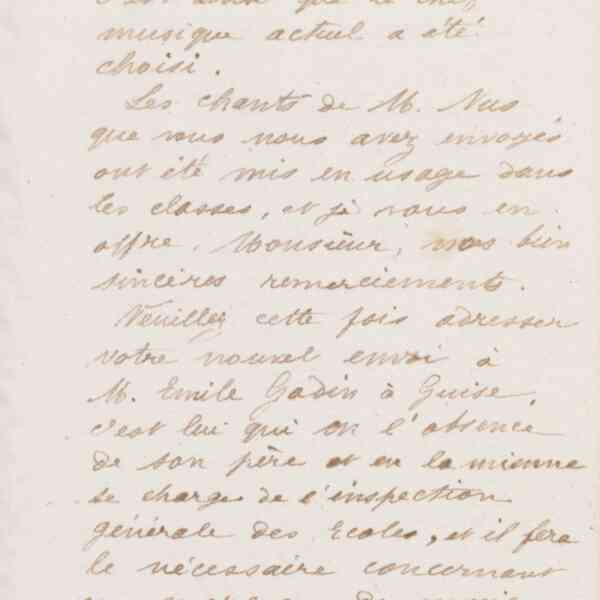 C'est ainsi que le chef
musique actuel a été
choisi.
Les chants de M. Nus
que vous nous avez envoyés
ont été mis en usage dans
les classes, et je vous en
offre, Monsieur, mes bien
sincères remerciements.
Veuillez cette fois adresser
votre nouvel envoi à
M. Emile Godin à Guise,
c'est lui qui en l'absence
de son père et en la mienne
se charge de l'inspection
générale des Ecoles, et il fera
le nécessaire concernant